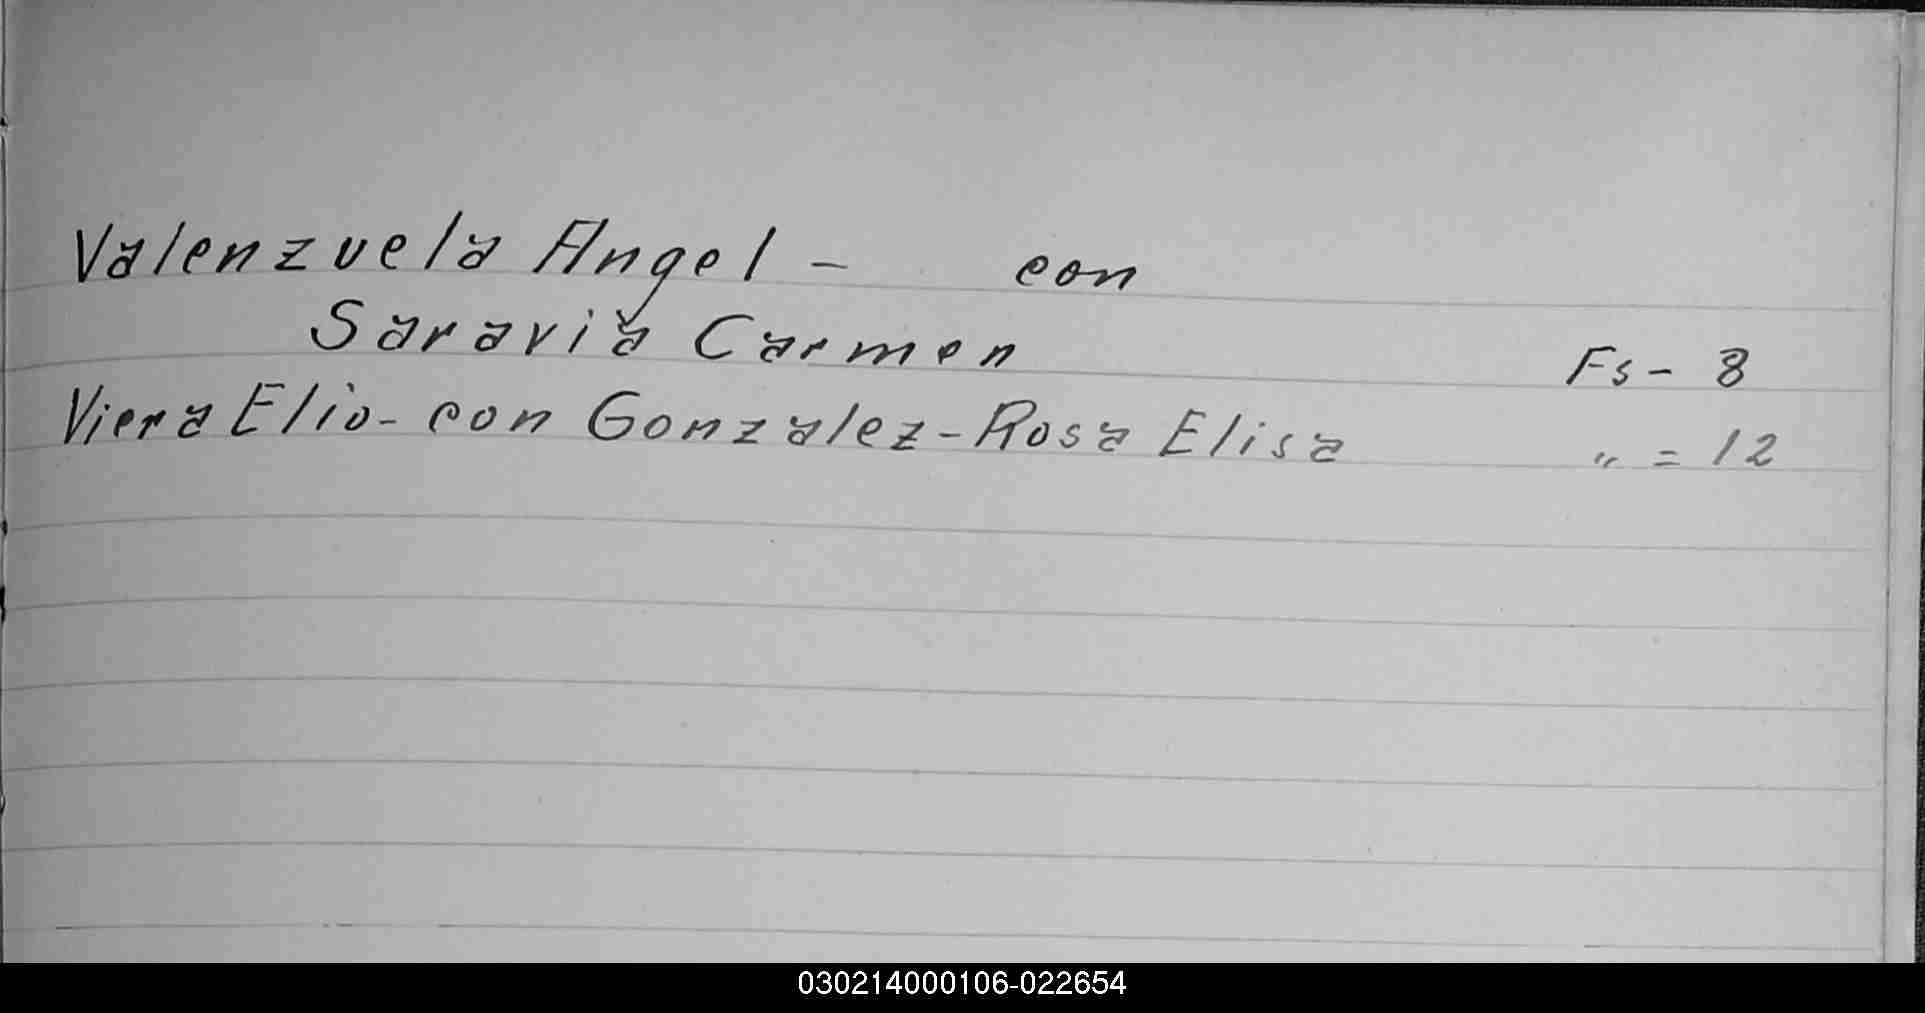 Valenzuela Angel - con
Saravia Carmen Fs - 8
Viera Elio - con Gonzalez - Rosa Elisa " = 12
030214000106-022654